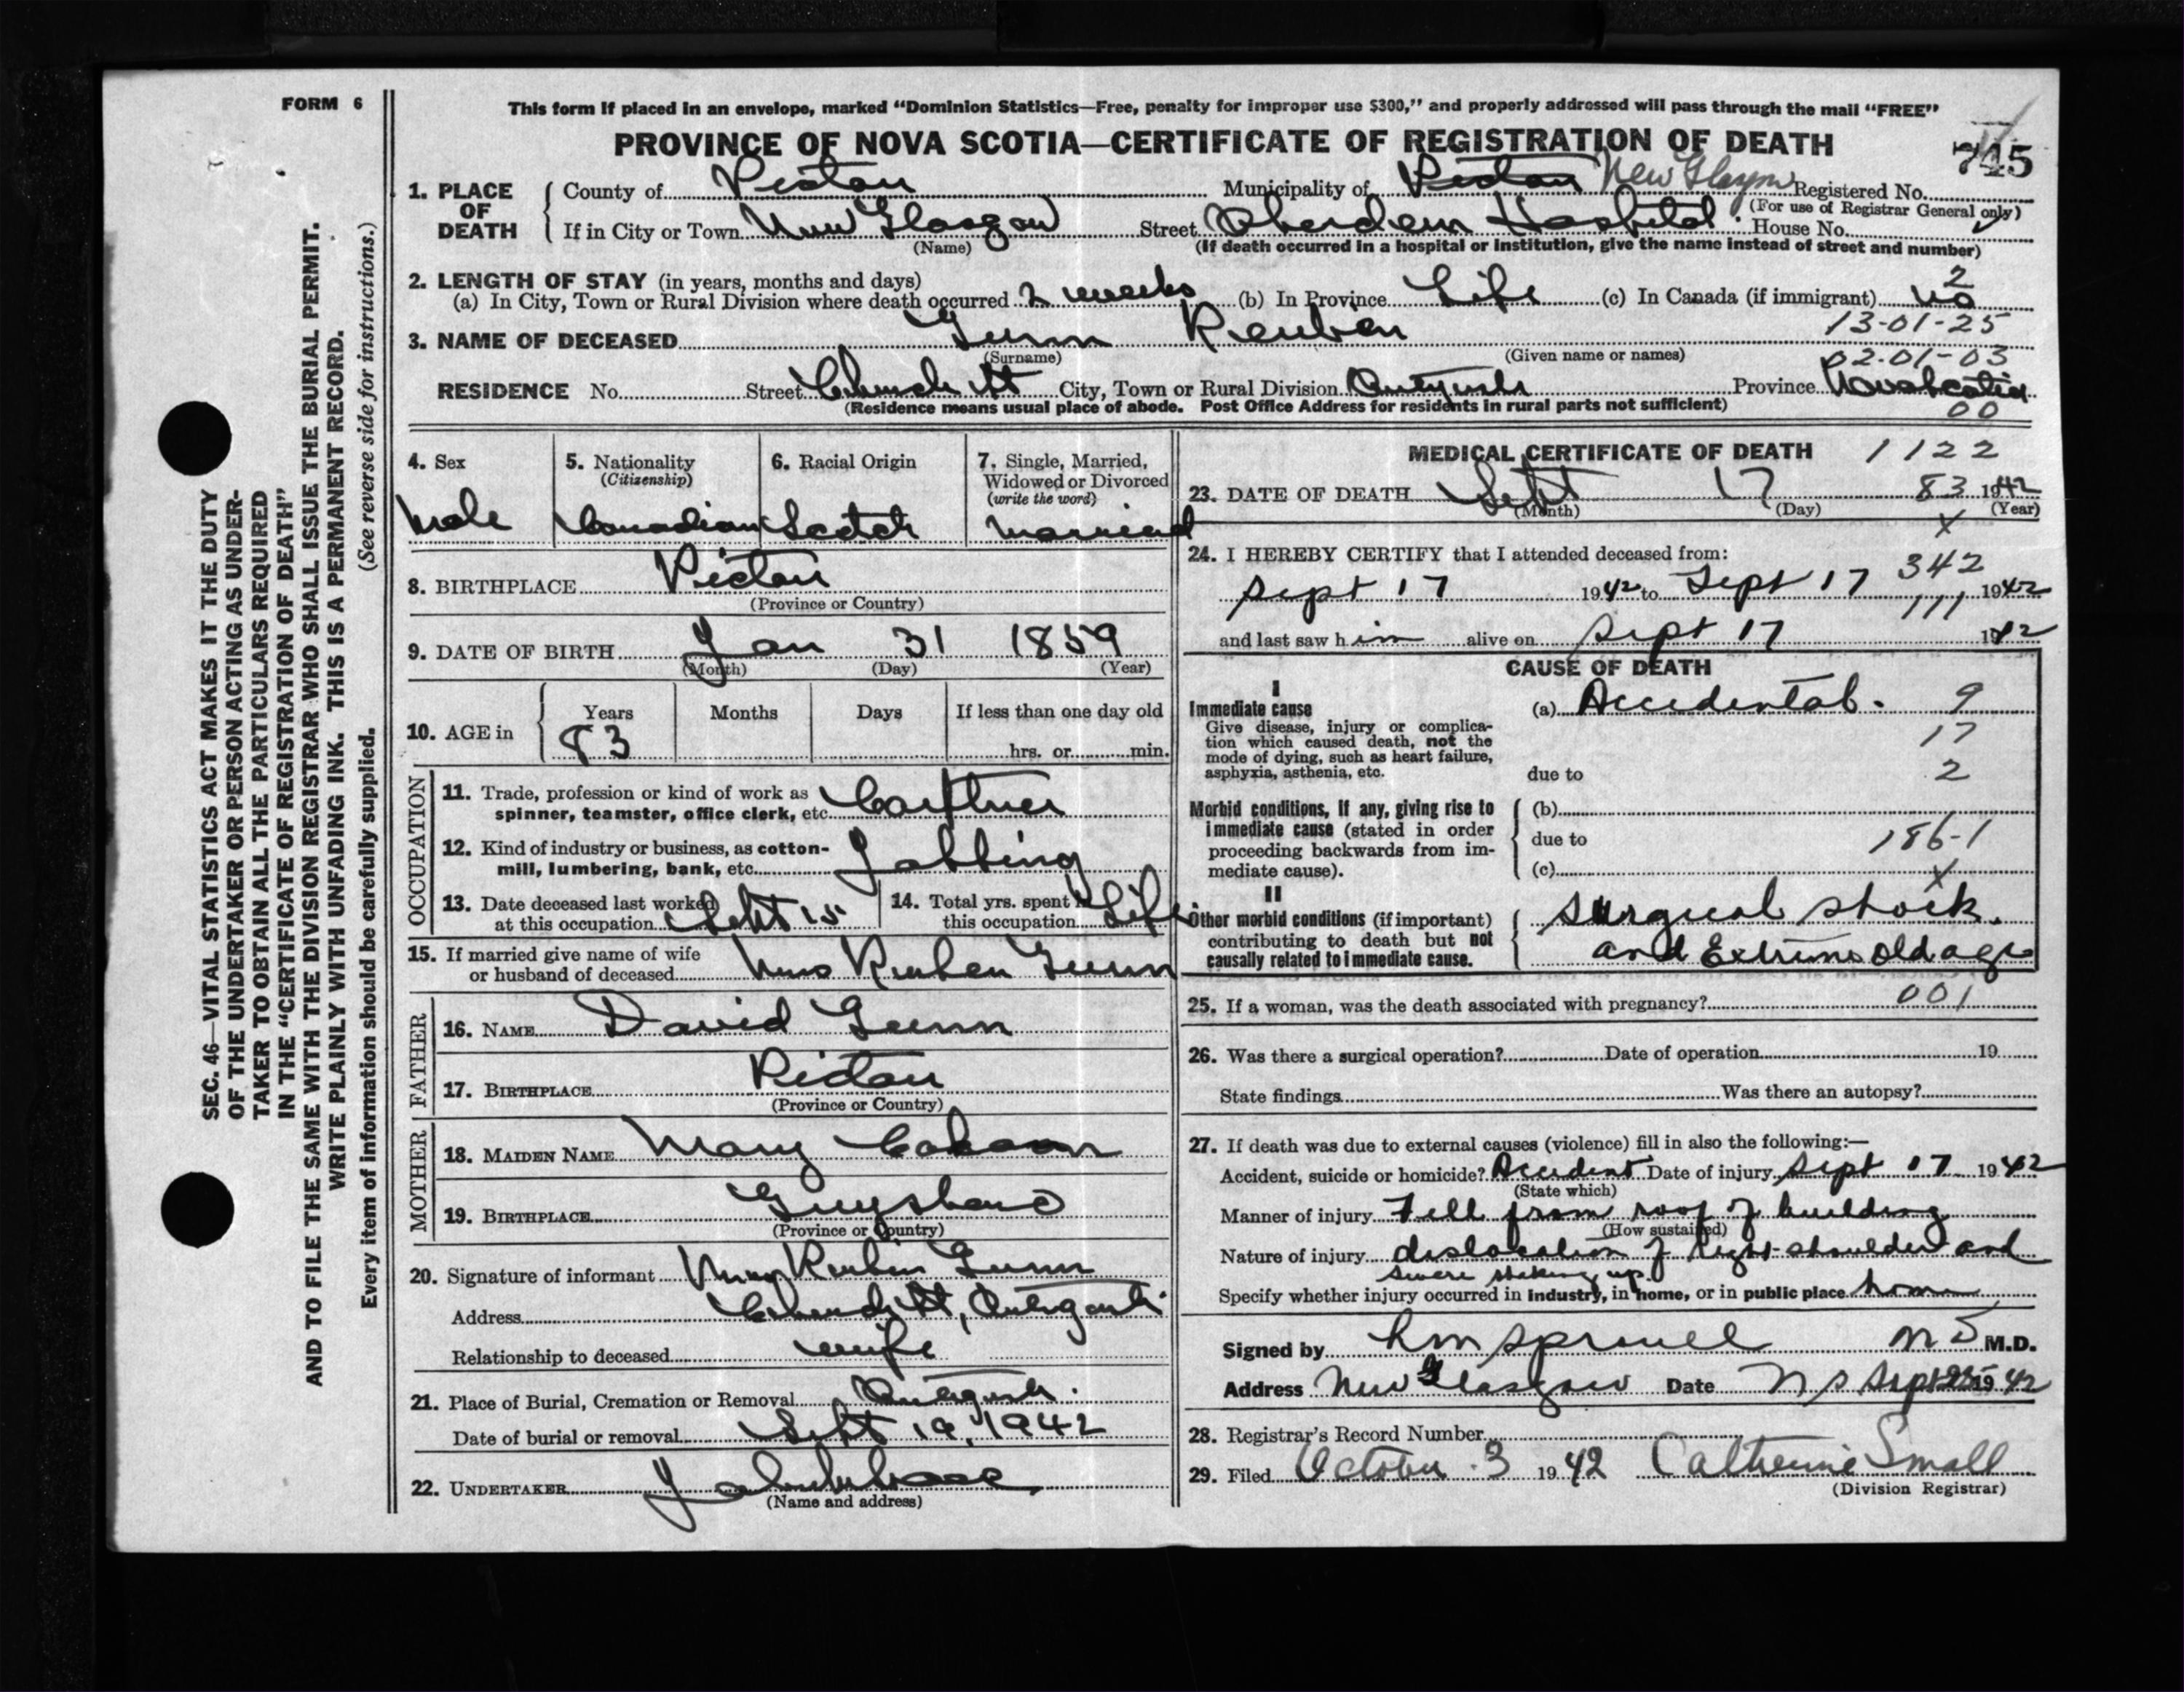 FORM 6
This form if placed in an envelope, marked “Dominion Statistics—Free, penalty for improper use $300,” and properly addressed will pass through the mail “FREE”
PROVINCE OF NOVA SCOTIA—CERTIFICATE OF REGISTRATION OF DEATH
745
1. PLACE OF DEATH County of Pictou Municipality of Pictou New Glasgow Registered No.
(For use of Registrar General only)
If in City or Town New Glasgow Street Aberdeen Hospital. House No.
(Name) (If death occurred in a hospital or institution, give the name instead of street and number)
2. LENGTH OF STAY (in years, months and days) 2
(a) In City, Town or Rural Division where death occurred 2 weeks (b) In Province Life (c) In Canada (if immigrant) no
13-01-25
3. NAME OF DECEASED Gunn Reuben
(Surname) (Given name or names) 02-01-03
RESIDENCE No. Street Church St City, Town or Rural Division Antigonish Province Nova Scotia
(Residence means usual place of abode. Post Office Address for residents in rural parts not sufficient) 00
4. Sex 5. Nationality (Citizenship) 6. Racial Origin 7. Single, Married, Widowed or Divorced (write the word)
Male Canadian Scotch Married
8. BIRTHPLACE Pictou
(Province or Country)
9. DATE OF BIRTH Jan 31 1859
(Month) (Day) (Year)
10. AGE in Years Months Days If less than one day old
83 hrs. or min.
OCCUPATION
11. Trade, profession or kind of work as spinner, teamster, office clerk, etc.
12. Kind of industry or business, as cotton-mill, lumbering, bank, etc. Jobbing
13. Date deceased last worked at this occupation Sept 15 14. Total yrs. spent in this occupation Life
15. If married give name of wife or husband of deceased Mrs Reuben Gunn
FATHER
16. NAME David Gunn
17. BIRTHPLACE Pictou
(Province or Country)
MOTHER
18. MAIDEN NAME Mary
19. BIRTHPLACE Guysboro
(Province or Country)
20. Signature of informant Mrs Reuben Gunn
Address Church St, Antigonish
Relationship to deceased wife
21. Place of Burial, Cremation or Removal Antigonish.
Date of burial or removal Sept 19, 1942
22. UNDERTAKER
(Name and address)
MEDICAL CERTIFICATE OF DEATH 1122
23. DATE OF DEATH Sept 17 83 1942
(Month) (Day) (Year)
x
24. I HEREBY CERTIFY that I attended deceased from:
342
Sept 17 1942 to Sept 17 1942
111
and last saw him alive on Sept 17 1942
CAUSE OF DEATH
I
Immediate cause (a) Accidental. 9
Give disease, injury or complication which caused death, not the mode of dying, such as heart failure, asphyxia, asthenia, etc.
17
due to 2
Morbid conditions, if any, giving rise to immediate cause (stated in order proceeding backwards from immediate cause).
(b)
due to 186-1
(c) x
II
Other morbid conditions (if important) contributing to death but not causally related to immediate cause.
Surgical shock.
and Extreme old age
25. If a woman, was the death associated with pregnancy? 001
26. Was there a surgical operation? Date of operation 19
State findings Was there an autopsy?
27. If death was due to external causes (violence) fill in also the following:—
Accident, suicide or homicide? Accident Date of injury Sept 17 1942
(State which)
Manner of injury Fell from roof of building
(How sustained)
Nature of injury dislocation of right shoulder and
severe shaking up.
Specify whether injury occurred in industry, in home, or in public place home
Signed by M.D.
Address New Glasgow Date N S Sept 1942
28. Registrar's Record Number
29. Filed October 3 1942 Catherine Small
(Division Registrar)
SEC. 46—VITAL STATISTICS ACT MAKES IT THE DUTY
OF THE UNDERTAKER OR PERSON ACTING AS UNDER-
TAKER TO OBTAIN ALL THE PARTICULARS REQUIRED
IN THE “CERTIFICATE OF REGISTRATION OF DEATH”
AND TO FILE THE SAME WITH THE DIVISION REGISTRAR WHO SHALL ISSUE THE BURIAL PERMIT.
WRITE PLAINLY WITH UNFADING INK. THIS IS A PERMANENT RECORD.
Every item of information should be carefully supplied. (See reverse side for instructions.)